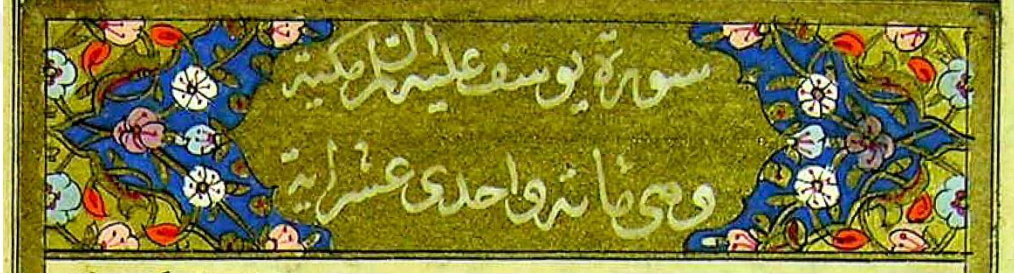 سورة يوسف عليه السلام مكية
وهي مائة واحدى عشر اية